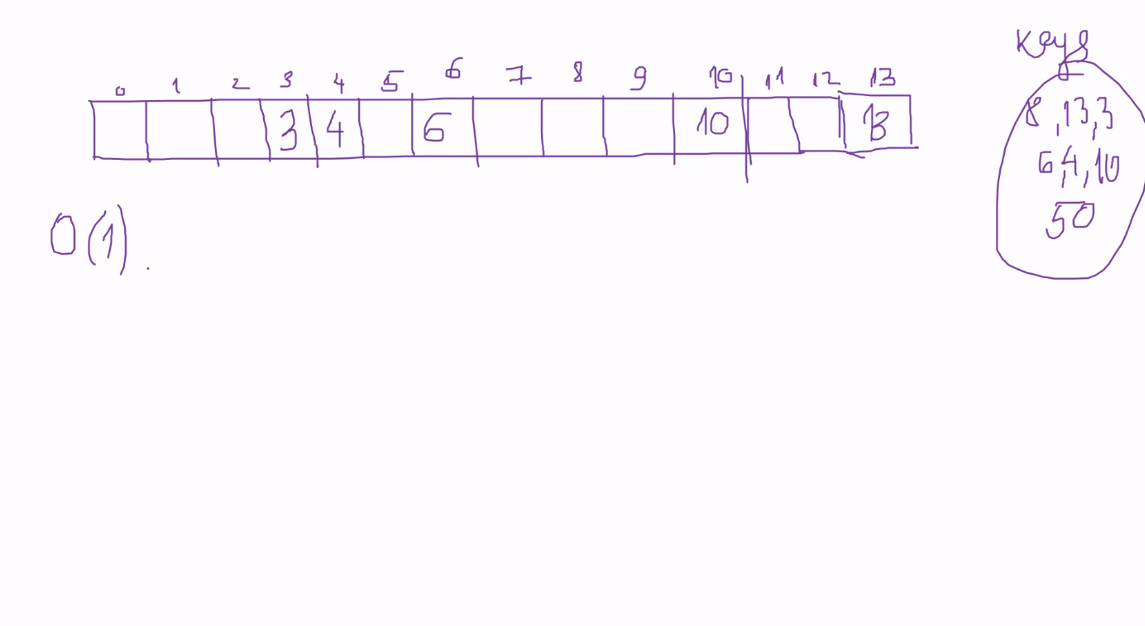 Keys
0 1 2 3 4 5 6 7 8 9 10 11 12 13
3 4 6 10 13
8, 13, 3
6, 4, 10
50
O(1).